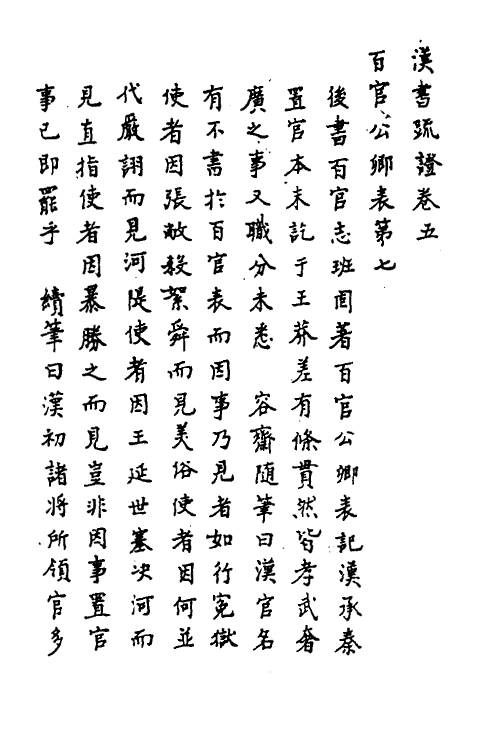 漢書疏證卷五
百官公卿表第七
後書百官志班固著百官公卿表記漢承秦
置官本末訖于王莽差有條貫然皆孝武奢
廣之事又職分未悉　容齋隨筆曰漢官名
有不書於百官表而因事乃見者如行冤獄
使者因張敞殺絮舜而見美俗使者因何並
代嚴詡而見河隄使者因王延世塞决河而
見直指使者因暴勝之而見豈非因事置官
事已即罷乎　續筆曰漢初諸將所領官多